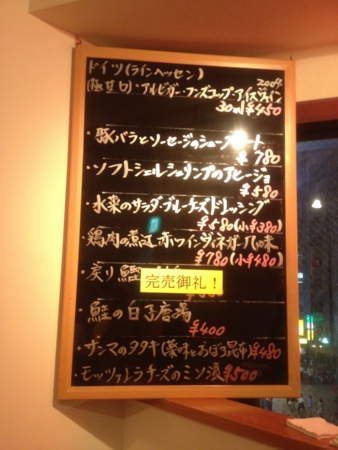 ドイツ(ラインヘッセン)
(極甘口)・アルビガー・フンズコップ・アイスヴァイン 2004
30ml ¥450
・豚バラとソーセージのシュークルート
¥780
・ソフトシェルシュリンプのアヒージョ
¥580
・水菜のサラダ・ブルーチーズドレッシング
¥580(小¥380)
・鶏肉の煮込 赤ワインヴィネガー風味
¥780(小¥480)
・炙り鰹
完売御礼!
・鮭の白子
¥400
・サンマのタタキ(薬味とおぼろ昆布)¥480
・モッツァレラチーズのミソ漬 ¥500